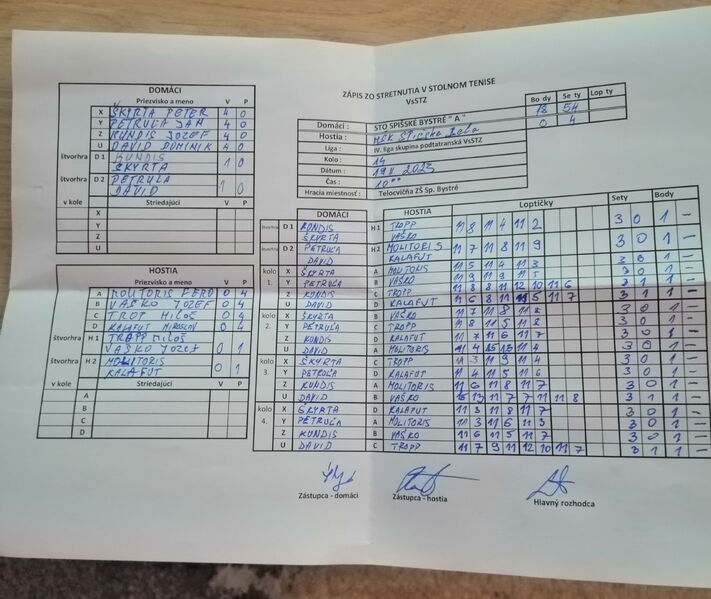 DOMÁCI
Priezvisko a meno V P
X ŠKYRTA PETER 4 0
Y PETRUĽA JAN 4 0
Z KUNDIS JOZEF 4 0
U DAVID DOMINIK 4 0
štvorhra D 1 KUNDIS 1 0
ŠKYRTA
štvorhra D 2 PETRUĽA 1 0
DAVID
v kole Striedajúci V P
X
Y
Z
U
HOSTIA
Priezvisko a meno V P
A MOLITORIS FERO 0 4
B VAŠKO JOZEF 0 4
C TROP MILOŠ 0 4
D KALAFUT MIROSLAV 0 4
štvorhra H 1 TROPP MILOŠ 0 1
VAŠKO JOZEF
štvorhra H 2 MOLITORIS 0 1
KALAFUT
v kole Striedajúci V P
A
B
C
D
ZÁPIS ZO STRETNUTIA V STOLNOM TENISE
VsSTZ
Bo dy Se ty Lop ty
Domáci : STO SPIŠSKÉ BYSTRÉ " A " 18 54
Hostia : MSK Spišská Belá 0 4
Liga : IV. liga skupina podtatranská VsSTZ
Kolo : 14
Dátum : 2023
Čas : 10⁰⁰
Hracia miestnosť : Telocvičňa ZŠ Sp. Bystré
DOMÁCI HOSTIA Loptičky Sety Body
štvorhra D 1 KUNDIS H 1 TROPP 11 8 11 4 11 2 3 0 1 –
ŠKYRTA VAŠKO
štvorhra D 2 PETRUĽA H 2 MOLITORIS 11 7 11 8 11 9 3 0 1 –
DAVID KALAFUT
kolo 1. X ŠKYRTA A MOLITORIS 11 5 11 4 11 3 3 0 1 –
Y PETRUĽA B VAŠKO 11 9 11 9 11 5 3 0 1 –
Z KUNDIS C TROPP 11 8 8 11 12 10 11 6 3 1 1 –
U DAVID D KALAFUT 11 6 8 11 11 5 11 7 3 1 1 –
kolo 2. X ŠKYRTA B VAŠKO 11 7 11 8 11 2 3 0 1 –
Y PETRUĽA C TROPP 11 8 11 5 11 8 3 0 1 –
Z KUNDIS D KALAFUT 11 7 11 6 11 7 3 0 1 –
U DAVID A MOLITORIS 11 4 15 13 11 4 3 0 1 –
kolo 3. X ŠKYRTA C TROPP 11 3 11 9 11 4 3 0 1 –
Y PETRUĽA D KALAFUT 11 4 11 5 11 6 3 0 1 –
Z KUNDIS A MOLITORIS 11 6 11 8 11 7 3 0 1 –
U DAVID B VAŠKO 15 13 11 7 7 11 11 8 3 1 1 –
kolo 4. X ŠKYRTA D KALAFUT 11 3 11 8 11 7 3 0 1 –
Y PETRUĽA A MOLITORIS 11 3 11 6 11 3 3 0 1 –
Z KUNDIS B VAŠKO 11 6 11 5 11 7 3 0 1 –
U DAVID C TROPP 11 7 9 11 12 10 11 7 3 1 1 –
Zástupca - domáci Zástupca - hostia Hlavný rozhodca